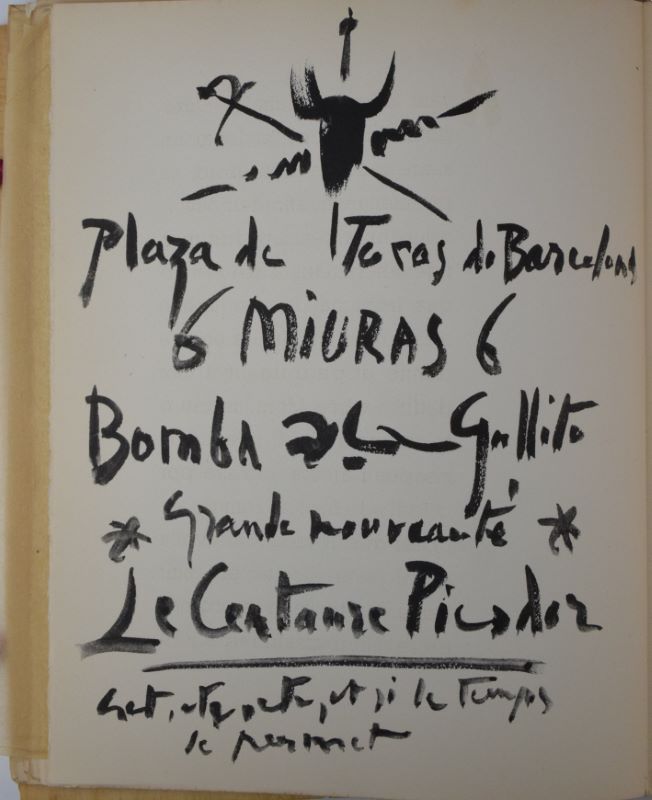 Plaza de Toros de Barcelona
6 MIURAS 6
Bomba Gallito
Grande nouveauté
Le Centaure Picador
et, etc, etc, et si le temps
le permet